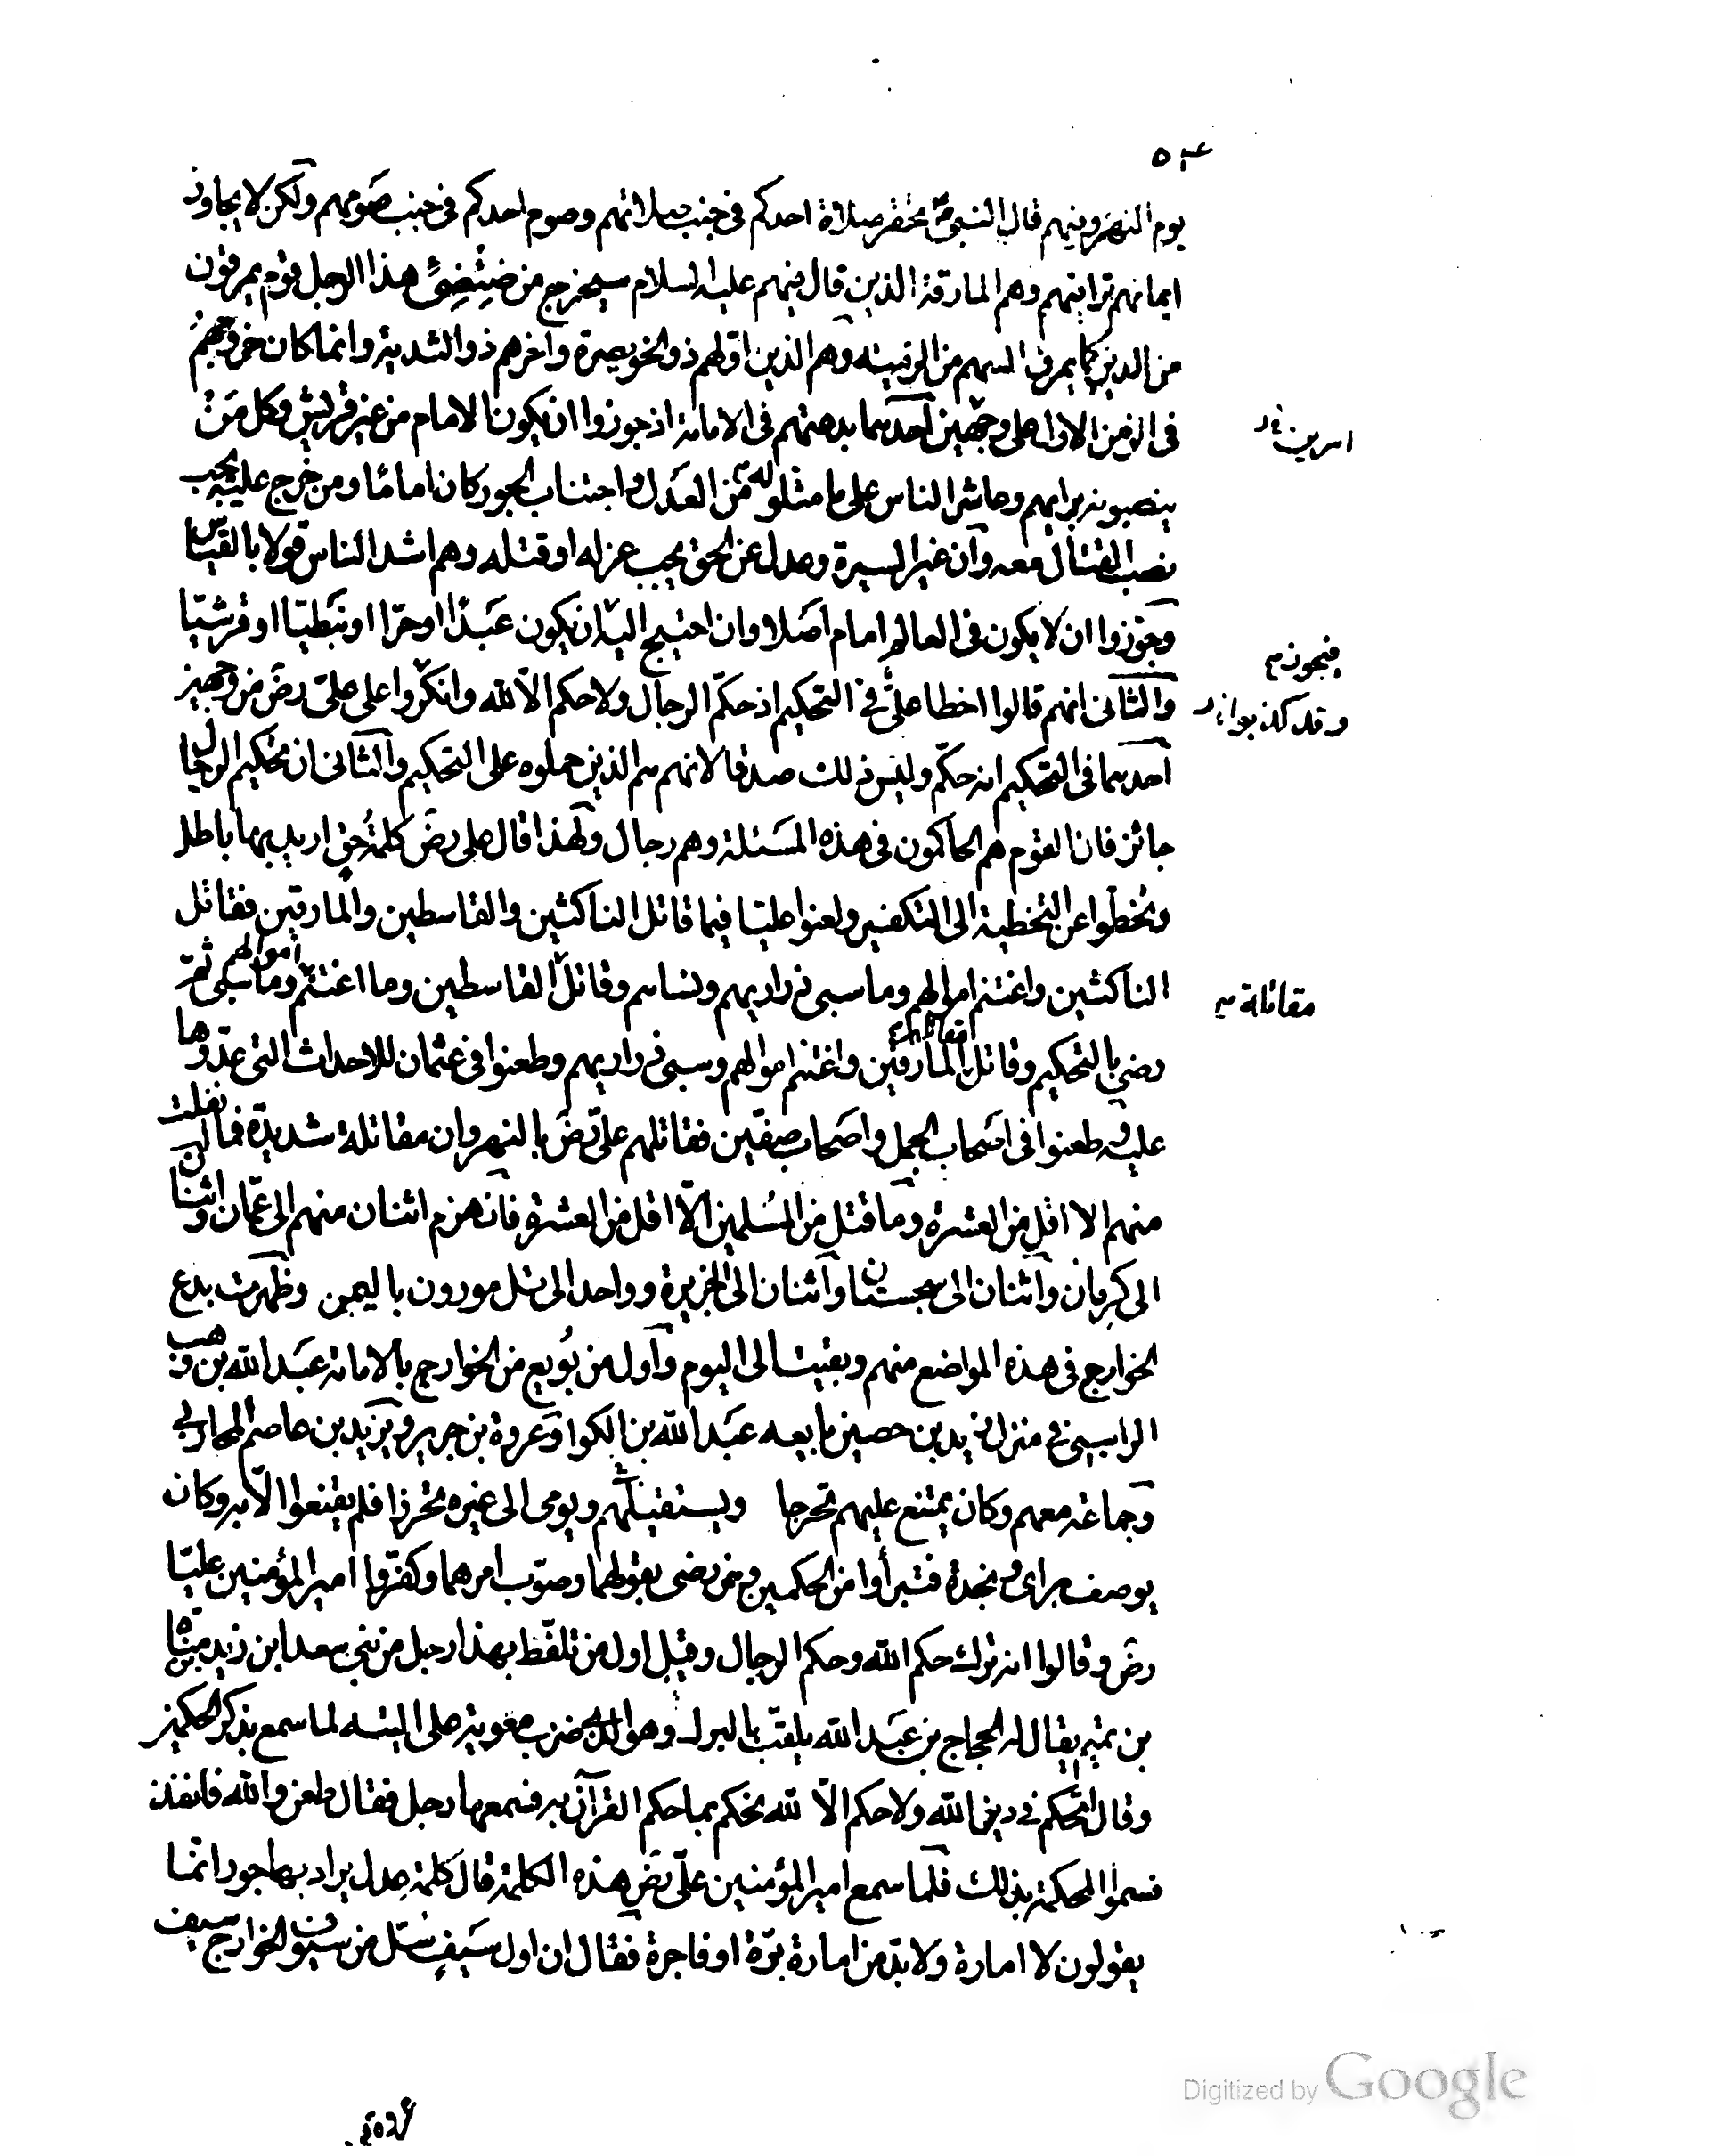 ٥٣٤
يوم النهروفيهم قال النبي ص تحقر صلاة احدكم في جنب صلاتهم وصوم احدكم في جنب صومهم ولكن لا يجاوز
ايمانهم تراقيهم وهم المارقة الذين قال فيهم عليه السلام سيخرج من ضئضئ هذا الرجل قوم يمرقون
من الدين كما يمرق السهم من الرمية وهم الذين اولهم ذو الخويصرة وآخرهم ذو الثدية وانما كان خروجهم
في الزمن الاول على وجهين احدهما بدعتهم في الامامة اذ جوزوا ان يكون الامام من غير قريش وكل من
امرين نـ
ينصبونه برايهم وعاشر الناس على ما مثلوا له من العدل واجتناب الجور كان اماما ومن خرج عليه يجب
نصب القتال معه وان غير السيرة وعدل عن الحق يجب عزله او قتله وهم اشد الناس قولا بالقياس
وجوزوا ان لا يكون في العالم امام اصلا وان احتيج اليه ان يكون عبدا او حرا او نبطيا او قرشيا
فيجوز م
والثاني انهم قالوا اخطا علي في التحكيم اذ حكم الرجال ولا حكم الا لله وانكروا على علي رض من وجهين
وقد كذبوا نـ
احدهما في التحكيم انه حكم وليس ذلك صدقا لانهم هم الذين حملوه على التحكيم والثاني ان تحكيم الرجال
جائز فان القوم هم الحاكمون في هذه المسئلة وهم رجال ولهذا قال علي رض كلمة حق اريد بها باطل
وتخطوا عن التخطية الى التكفير ولعنوا عليا فيما قاتل الناكثين والقاسطين والمارقين فقاتل
الناكثين واغتنم اموالهم وما سبى ذراريهم ونساءهم وقاتل القاسطين وما اغتنم اموالهم وما سبى ثم
مقاتلة م
رضي بالتحكيم وقاتل مقاتلة المارقين واغتنم اموالهم وسبى ذراريهم وطعنوا في عثمان للاحداث التي عدوها
عليه وطعنوا في اصحاب الجمل واصحاب صفين فقاتلهم علي رض بالنهروان مقاتلة شديدة فما انفلت
منهم الا اقل من العشرة وما قتل من المسلمين الا اقل من العشرة فانهزم اثنان منهم الى عمان واثنان
الى كرمان واثنان الى سجستان واثنان الى الجزيرة وواحد الى تل مورون باليمن وظهرت بدع
الخوارج في هذه المواضع منهم وبقيت الى اليوم واول من بويع من الخوارج بالامامة عبد الله بن وهب
الراسبي في منزل زيد بن حصين بايعه عبد الله بن الكوا وعروة بن جرير ويزيد بن عاصم المحاربي
وجماعة معهم وكان يمتنع عليهم تحرجا ويستقيلهم ويومى الى غيره تحرزا فلم يقنعوا الا به وكان
يوصف براى ونجدة فتبرأوا من الحكمين وممن رضى بقولهما وصوب امرهما وكفروا امير المؤمنين عليا
رض وقالوا انه ترك حكم الله وحكم الرجال وقيل اول من تلفظ بهذا رجل من بني سعد ابن زيد مناة
بن تميم يقال له الحجاج بن عبد الله يلقب بالبرك وهو الذي ضرب معوية على اليته لما سمع بذكر الحكمين
وقال اتحكم في دين الله ولا حكم الا لله نحكم بما حكم القرآن به فسمعها رجل فقال طعن والله فانفذ
فسموا المحكمة بذلك فلما سمع امير المؤمنين علي رض هذه الكلمة قال كلمة عدل يراد بها جور انما
يقولون لا امارة ولا بد من امارة برة او فاجرة فقال ان اول سيف سل من سيوف الخوارج سيف
Digitized by Google